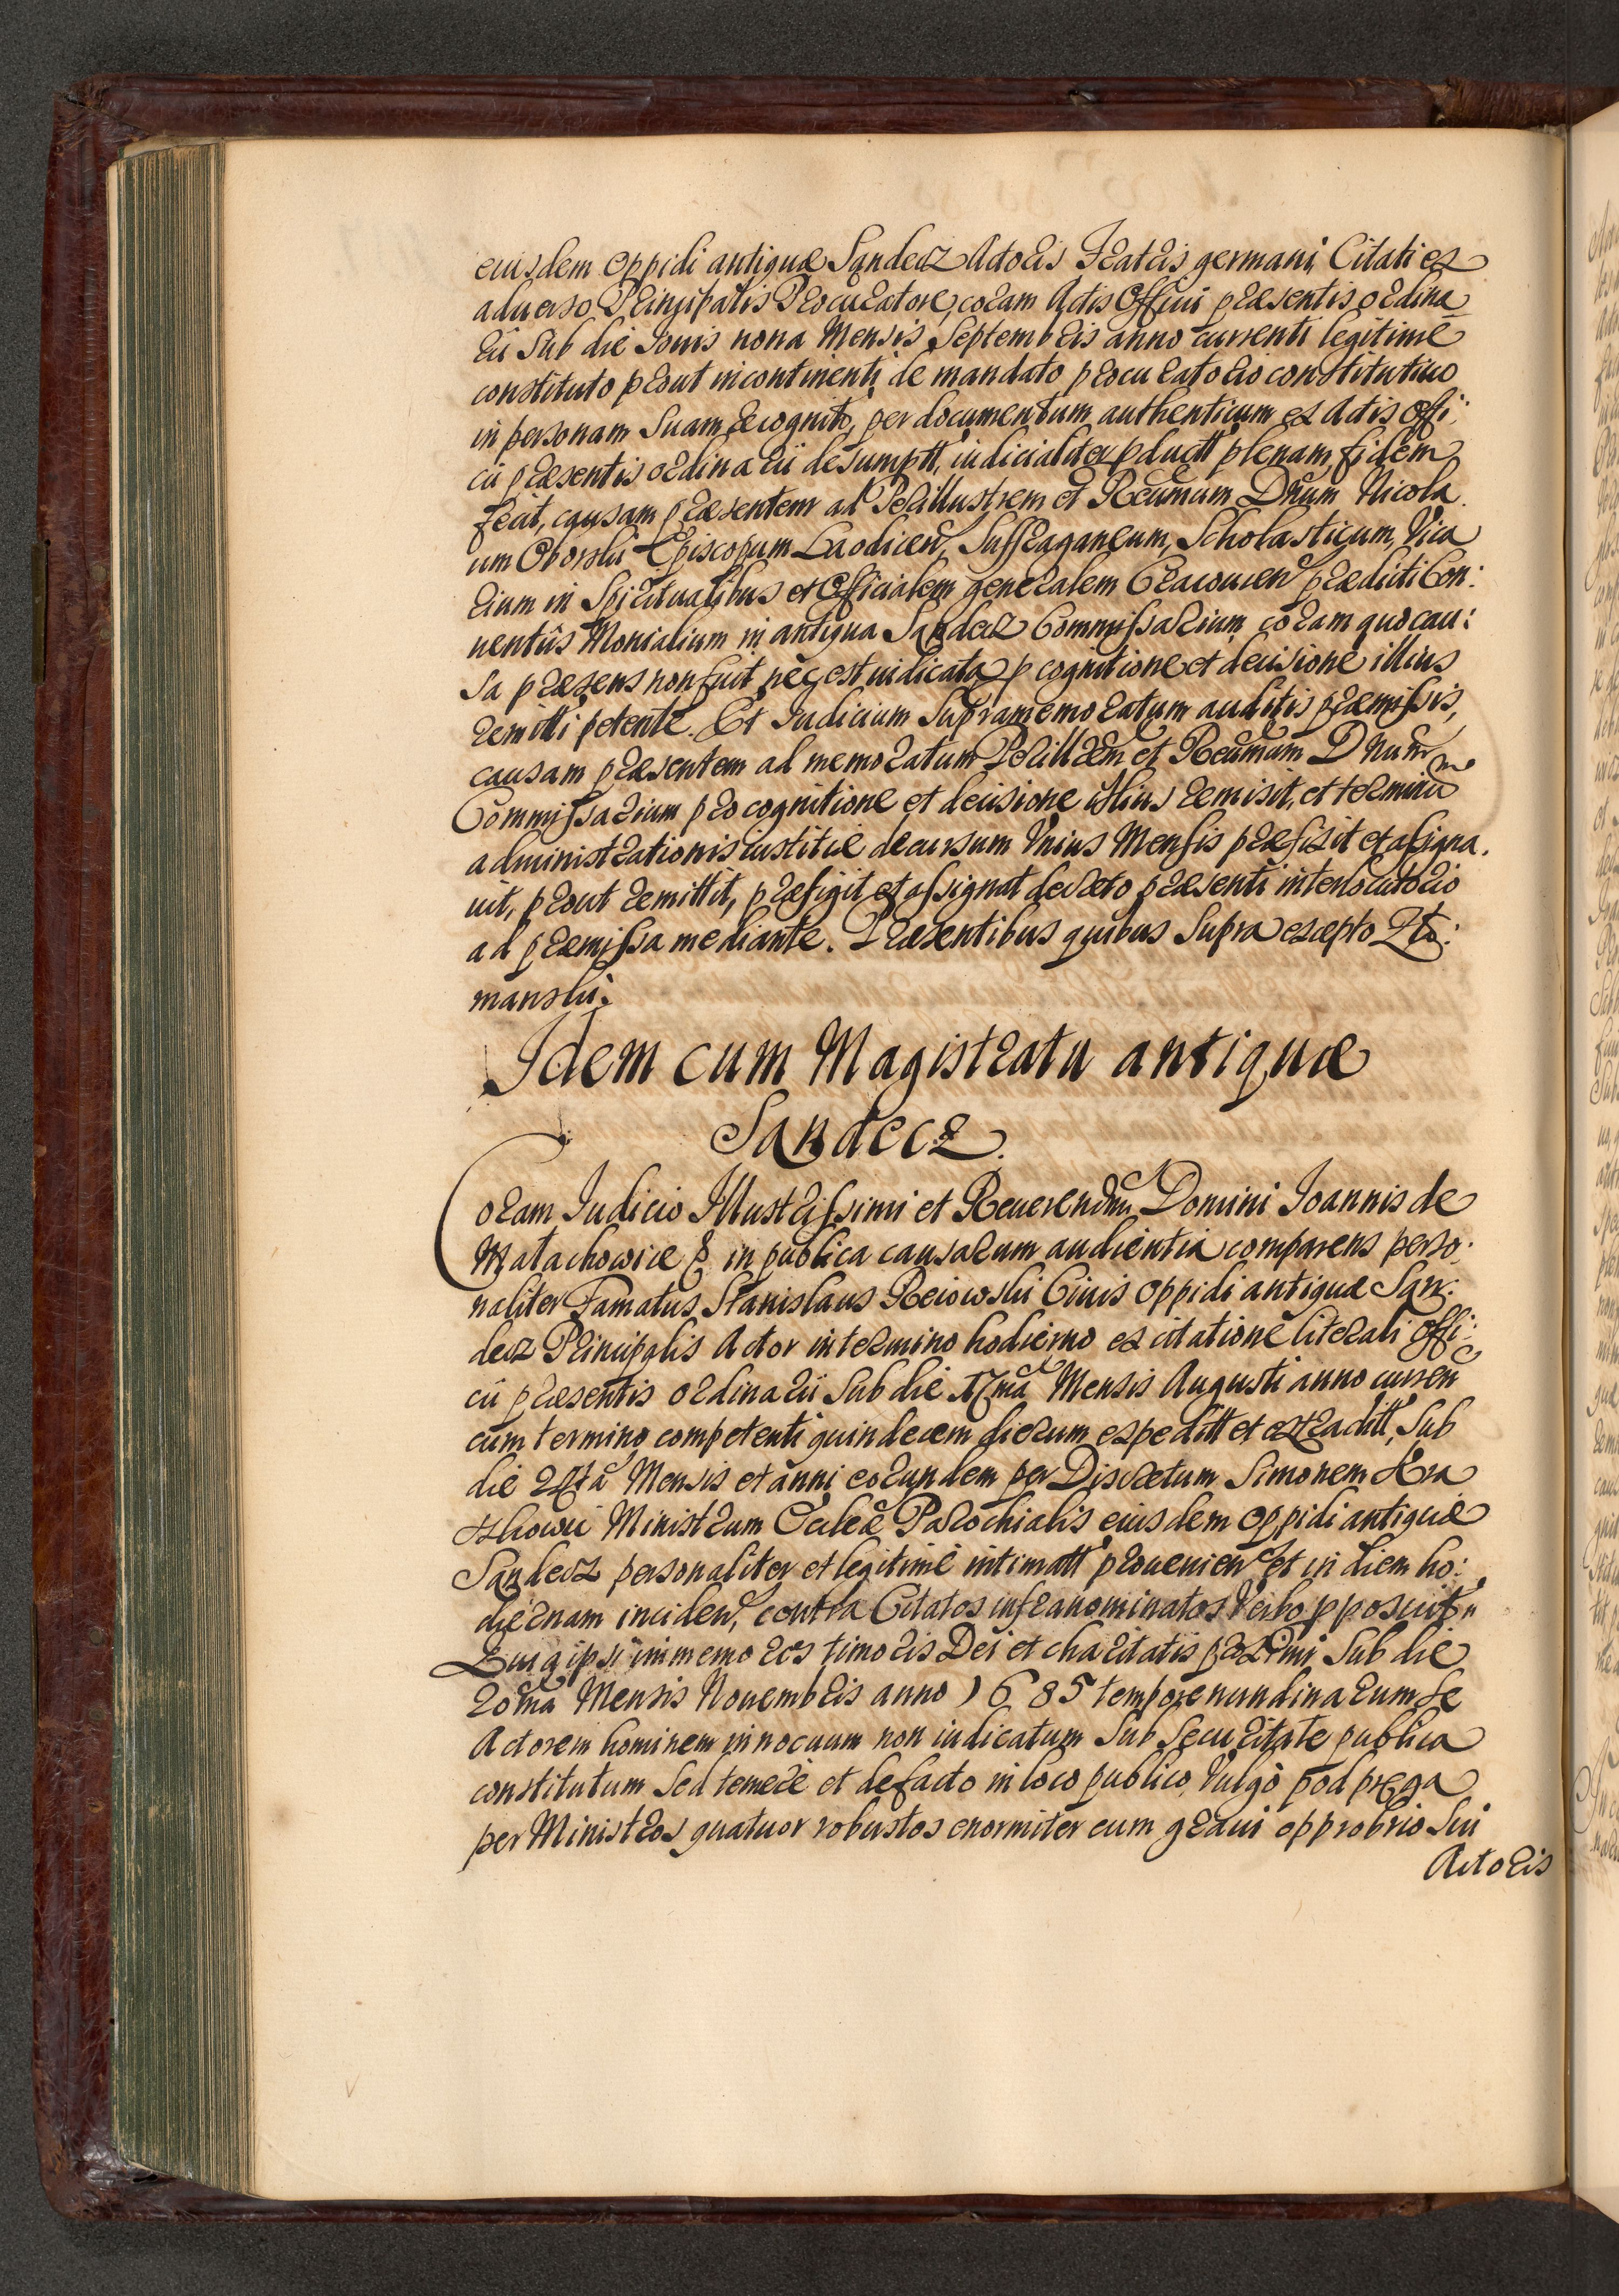 eiusdem Oppidi antiquæ Sandecz Actoris Fratris germani Citati ex
aduerso Principalis Procuratore, coram Actis Officii præsentis ordina
rii Sub die Jouis nona Mensis Septembris anno currenti legitimè
constituto prout incontinenti de mandato procuratorio constitutiuo
in personam Suam recognito, per documentum authenticum ex Actis Offi:
cii præsentis ordinarii desumptt, iudicialiter pductt plenam fidem
fecit, causam præsentem ad Perillustrem et Reuḿum Dnum Nicola
um Oborski Episcopum Laodiceń, Suffraganeum, Scholasticum, Vica
rium in Spiritualibus et Officialem generalem Cracouień prædicti Con:
uentûs Monialium in antiqua Sandecz Commissarium coram quo cau:
sa præsens non fuit nec est iudicata p cognitione et decisione illius
remitti petente. Et Iudicium Supramemoratum auditis præmissis,
causam præsentem ad memoratum Perillrem et Reuḿum Dnum
Commissarium pro cognitione et decisione illius remisit, et terminū
administrationis iustitiæ decursum Vnius Mensis præfixit et assigna.
uit, prout remittit, præfigit et assignat decreto præsenti interlocutorio
ad præmissa mediante. Præsentibus quibus Supra excepto
manski.
Idem cum Magistratu antiquæ
Sandecz.
Coram Iudicio Illustrissimi et Reuerendmi Domini Ioannis de
Małachowice & in publica causarum audientia comparens perso:
naliter Famatus Stanislaus Reiowski Ciuis Oppidi antiquæ San:
decz Principalis Actor in termino hodierno ex citatione literali Offi:
cii præsentis ordinarii Sub die 17ma Mensis Augusti anno curreń
cum termino competenti quindecem dierum expeditt et extraditt, Sub
die 24ta Mensis et anni eorundem per Discretum Simonem
Ministrum Eccleæ Parochialis eiusdem Oppidi antiquæ
Sandecz personaliter et legitimè intimatt prouenień et in diem ho:
diernam incideń, contra Citatos infranominatos Verbo pposuit
Quia ipsi immemores timoris Dei et charitatis proximi Sub die
20ma Mensis Nouembris anno 1685 tempore nundinarum Se
Actorem hominem innocuum non iudicatum Sub Securitate publica
constitutum Sed temerè et de facto in loco publico, Vulgò pod pręgą
per Ministros quatuor robustos enormiter cum graui opprobrio Sui
Actoris